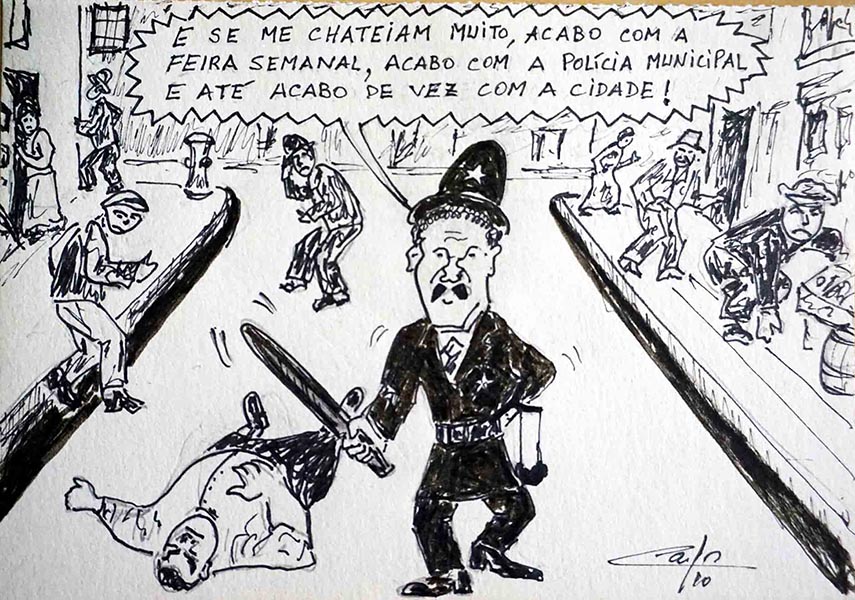 E SE ME CHATEIAM MUITO, ACABO COM A
FEIRA SEMANAL, ACABO COM A POLÍCIA MUNICIPAL
E ATÉ ACABO DE VEZ COM A CIDADE!